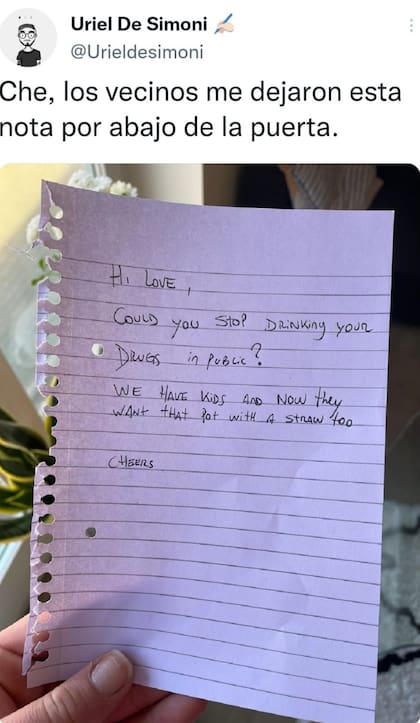 Uriel De Simoni ✍🏻
@Urieldesimoni
Che, los vecinos me dejaron esta
nota por abajo de la puerta.
HI LOVE,
COULD YOU STOP DRINKING YOUR
DRUGS in public?
WE HAVE KIDS AND NOW they
WANT tHAT POT WITH A STRAW too
CHEERS